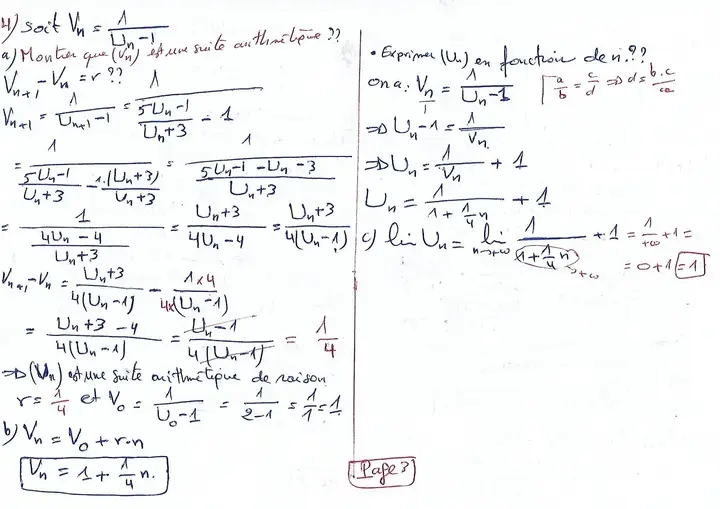 4) soit Vn = 1/(Un-1)
a) Montrer que (Vn) est une suite arithmétique ??
Vn+1 - Vn = r ??
Vn+1 = 1/(Un+1 - 1) = 1/((5Un-1)/(Un+3) - 1)
= 1/((5Un-1)/(Un+3) - 1.(Un+3)/(Un+3)) = 1/((5Un-1-Un-3)/(Un+3))
= 1/((4Un-4)/(Un+3)) = (Un+3)/(4Un-4) = (Un+3)/(4(Un-1))
Vn+1 - Vn = (Un+3)/(4(Un-1)) - (1×4)/(4×(Un-1))
= (Un+3-4)/(4(Un-1)) = (Un-1)/(4(Un-1)) = 1/4
=> (Vn) est une suite arithmétique de raison
r = 1/4 et V0 = 1/(U0-1) = 1/(2-1) = 1/1 = 1.
b) Vn = V0 + r.n
Vn = 1 + 1/4 n.
• Exprimer (Un) en fonction de n ??
on a: Vn/1 = 1/(Un-1)
a/b = c/d => d = b.c/a
=> Un-1 = 1/Vn.
=> Un = 1/Vn + 1
Un = 1/(1+1/4 n) + 1
c) lim Un = lim n→+∞ 1/(1+1/4 n) + 1 = 1/+∞ + 1 =
→+∞
= 0+1 = 1
Page 3